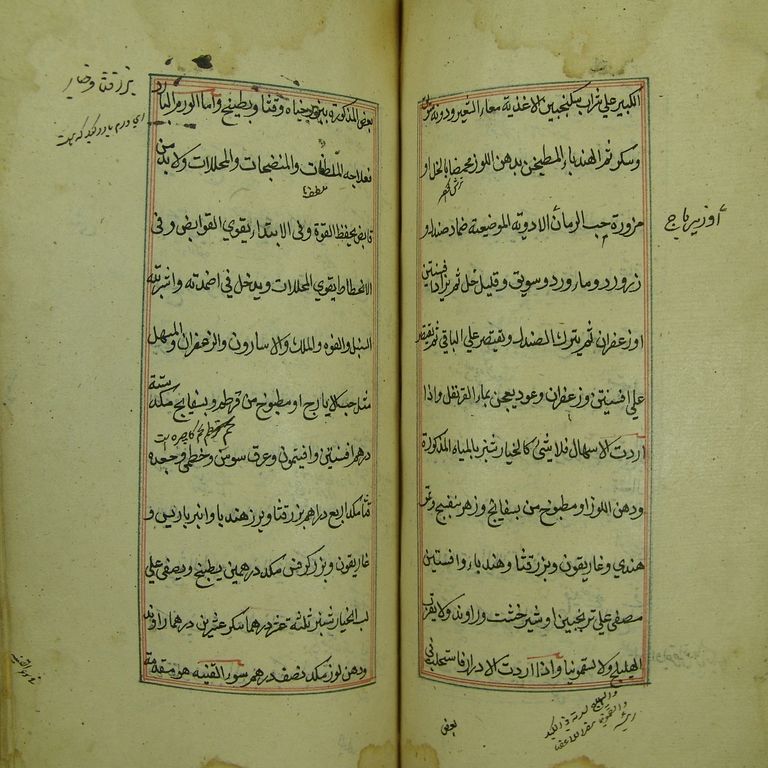 الكبير علي شراب سكنجبين الاغذية معار الشعير ودونه
وسكر ثم الهندباء المطيخن بدهن اللوز محمضا بالخل او
مزورة حب الرمان الادويه الموضعية ضماد صندل و
زرورد وماء ورد وسويق وقليل خل ثم يزاد افسنتين
او زعفران ثم يترك الصندل ويقتصر علي الباقي ثم يقتصر
علي افسنتين وزعفران وعود يعجن بماء القرنفل واذا
اردت الاسهال فلا شئ كالخيار شنبر بالمياه المذكورة
ودهن اللوز او مطبوخ من بسفايج وزهر بنفسج وتمر
هندي وغاريقون وبزر قثا وهندباء وافسنتين
مصفي علي ترنجبين او شير خشت وراوند ولا يقرب
الهليلج ولا سقمونيا واذا اردت الادرار فاستحلب في
بعض
بعض المذكورة بزور خياره وقثا وبطيخ واما الورم البارد
فعلاجه الملطفات والمنضجات والمحللات ولا بد من
قابض يحفظ القوة وفي الابتداء يقوي القوابض وفي
الانحطاط يقوي المحللات ويدخل في اضمدته واشربته
السنبل والفوه والملك والاسارون والزعفران والمسهل
مثل حب الايارج او مطبوخ من قرطم وبسفايج مكد ستة
درهم افسنتين وافيتمون وعرق سوس وخطمي وجعده
قثا مكد اربع دراهم بزر قثا وبزر هندبا وانبرباريس و
غاريقون وبزر كرفس مكد درهمين يطبخ ويصفي علي
لب الخيار شنبر ثلثة عشر درهما سكر عشرين درهما راوند
ودهن لوز مكد نصف درهم سوء القنيه هو مقدمة
بزر قثا وخيار